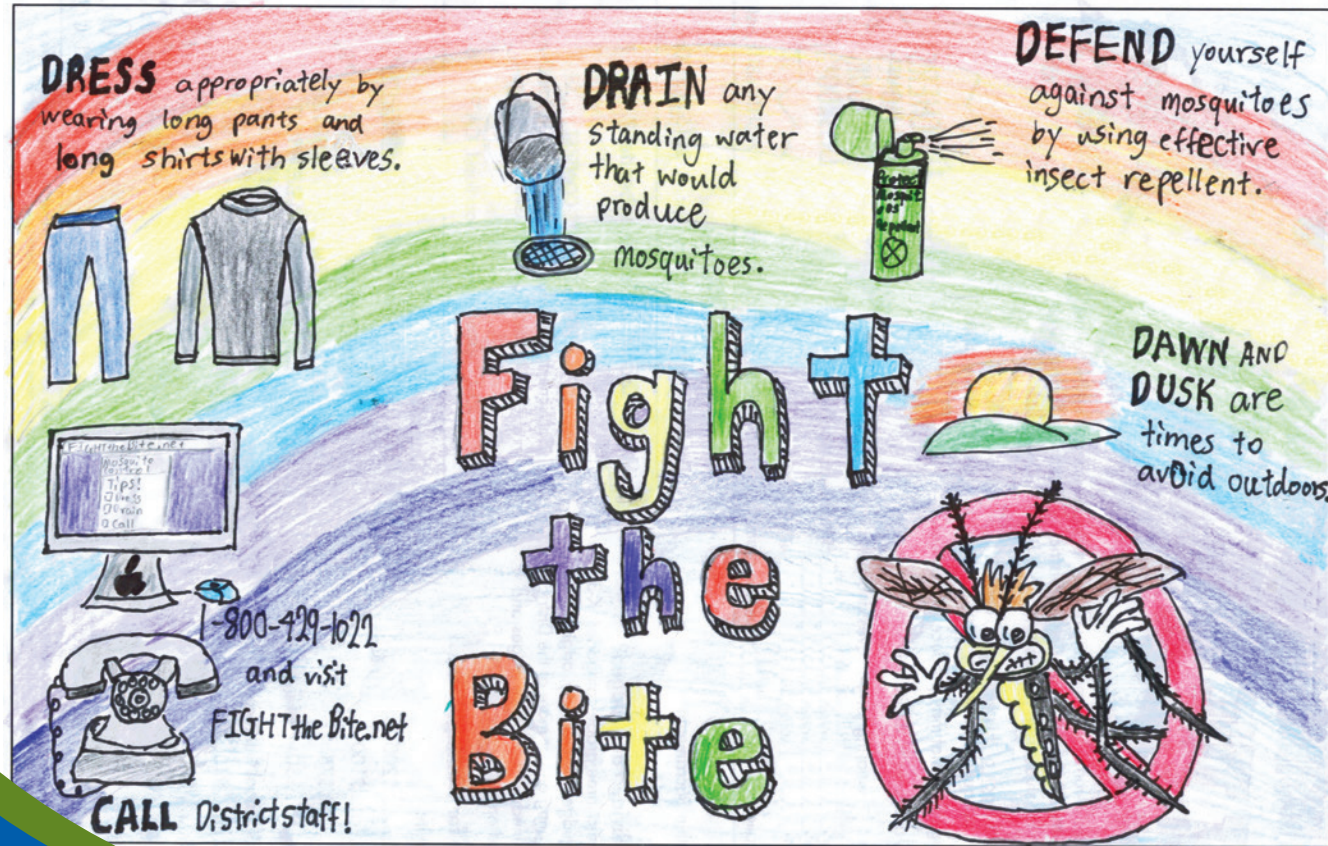 DRESS appropriately by
wearing long pants and
long shirts with sleeves.
DRAIN any
standing water
that would
produce
mosquitoes.
Protect
Mosquit
oes
repellent
DEFEND yourself
against mosquitoes
by using effective
insect repellent.
Fight
the
Bite
DAWN AND
DUSK are
times to
avoid outdoors.
FIGHTtheBite.net
Mosquito
Control
Tips!
Dress
Drain
Call
1-800-429-1022
and visit
FIGHTthe Bite.net
CALL District staff!